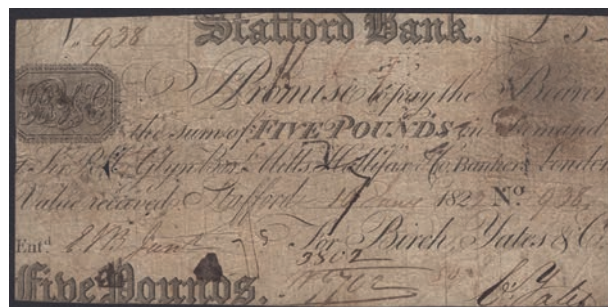 938 Stafford Bank. £ 5
Promise to pay the Bearer
the sum of FIVE POUNDS on Demand
at Sir R. C. Glyn Bart. Mills Halifax & Co. Bankers London
Value received. Stafford 19 1822 No. 938
Entd.
For Birch, Yates & C
2802
Five Pounds.